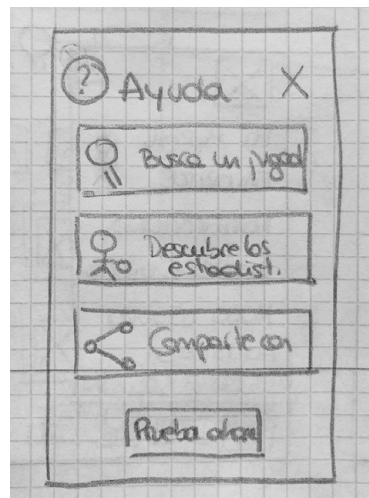 ? Ayuda X
Busca un jugad
Descubre los
estadist.
Comparte con
Prueba ahora